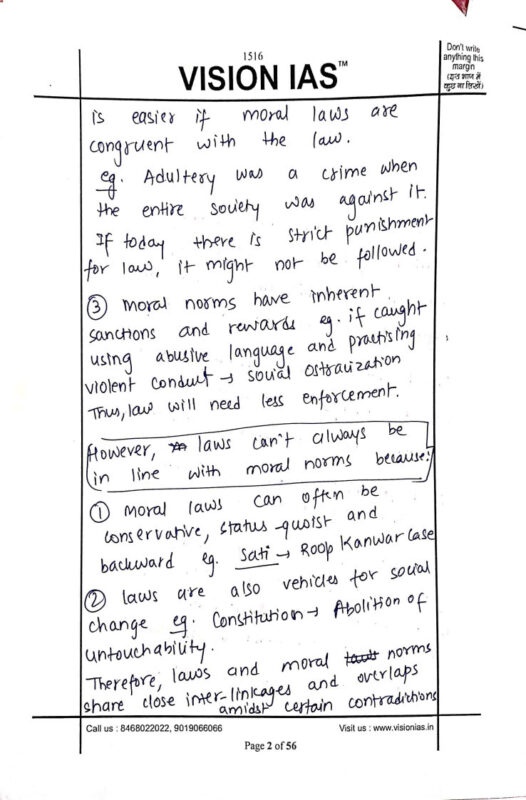 1516
VISION IAS™
Don't write
anything this
margin
(इस भाग में
कुछ ना लिखें)
is easier if moral laws are
congruent with the law.
eg. Adultery was a crime when
the entire society was against it.
If today there is strict punishment
for law, it might not be followed.
③ Moral norms have inherent
sanctions and rewards eg. if caught
using abusive language and practising
violent conduct → social ostraization
Thus, law will need less enforcement.
However, laws can't always be
in line with moral norms because:
① Moral laws can often be
conservative, status-quoist and
backward eg. Sati → Roop Kanwar Case
② Laws are also vehicles for social
change eg. Constitution → Abolition of
Untouchability.
Therefore, laws and moral norms
share close inter-linkages and overlaps
amidst certain contradictions
Call us : 8468022022, 9019066066
Visit us : www.visionias.in
Page 2 of 56